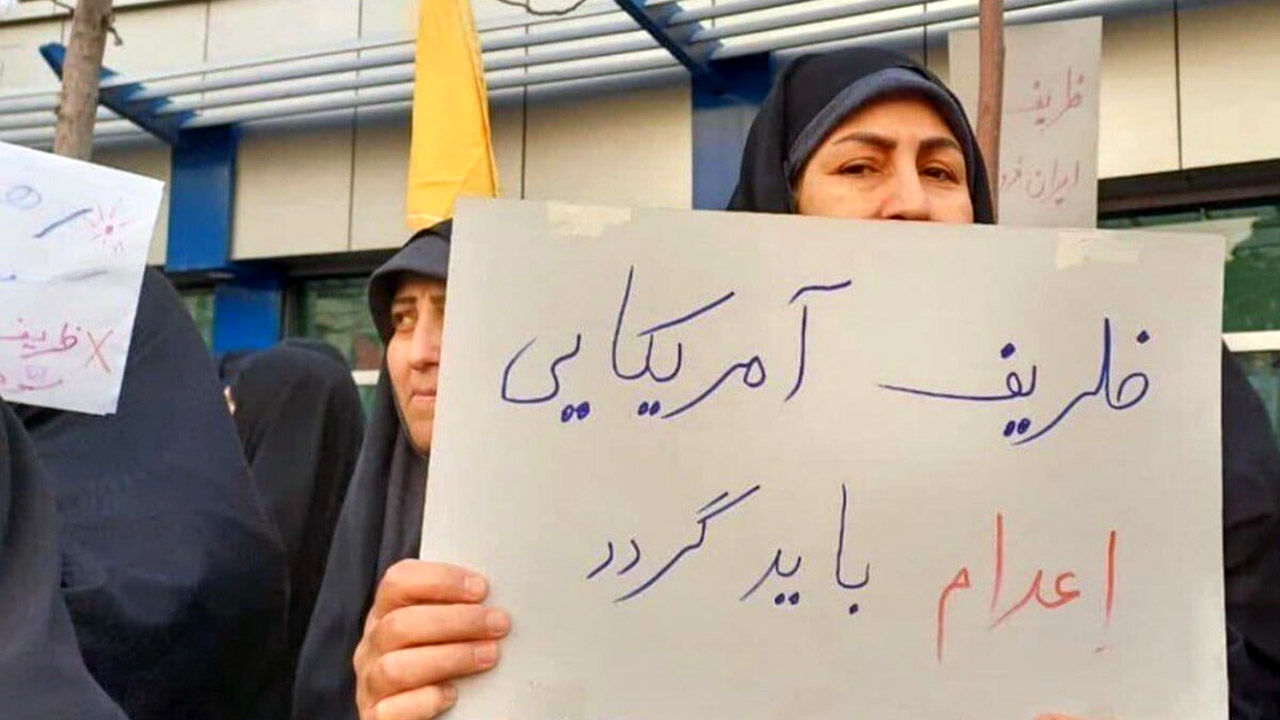 ظریف آمریکایی
اعدام باید گردد
ظریف
ایران
ظریف